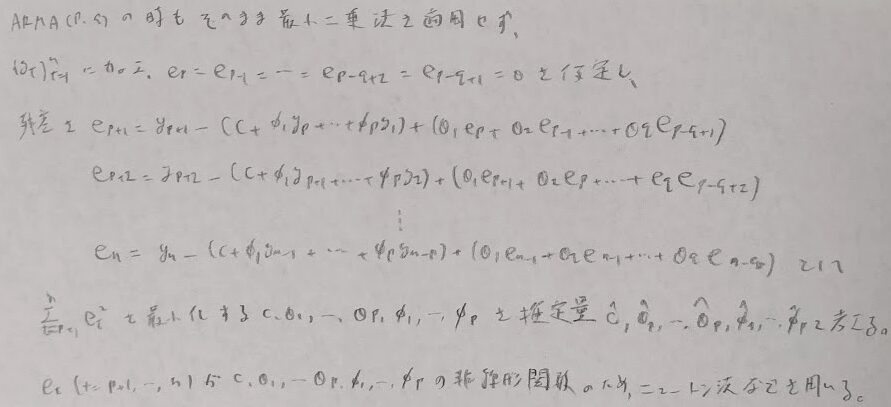 ARMA(P,q)の時もそのまま最小二乗法を適用せず、
{y_t}^n_{t=1}に加え、e_p = e_{p-1} = … = e_{p-q+2} = e_{p-q+1} = 0 を仮定し、
残差を e_{p+1} = y_{p+1} - (C + φ_1 y_p + … + φ_p y_1) + (θ_1 e_p + θ_2 e_{p-1} + … + θ_q e_{p-q+1})
e_{p+2} = y_{p+2} - (C + φ_1 y_{p+1} + … + φ_p y_2) + (θ_1 e_{p+1} + θ_2 e_p + … + e_q e_{p-q+2})
⋮
e_n = y_n - (C + φ_1 y_{n-1} + … + φ_p y_{n-p}) + (θ_1 e_{n-1} + θ_2 e_{n-1} + … + θ_q e_{n-q}) として
Σ^n_{t=p+1} e_t^2 を最小化する C, θ_1, …, θ_p, φ_1, …, φ_p を推定量 ĉ, θ̂_p, …, θ̂_p, φ̂_1, …, φ̂_p と考える。
e_t (t = p+1, …, n) が C, θ_1, … θ_p, φ_1, …, φ_p の非線形関数のため、ニュートン法などを用いる。